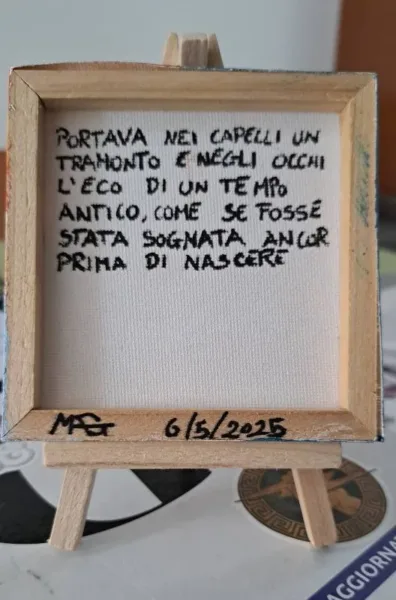 PORTAVA NEI CAPELLI UN
TRAMONTO E NEGLI OCCHI
L'ECO DI UN TEMPO
ANTICO, COME SE FOSSE
STATA SOGNATA ANCOR
PRIMA DI NASCERE
MAG 6/5/2025
AGGIORNA